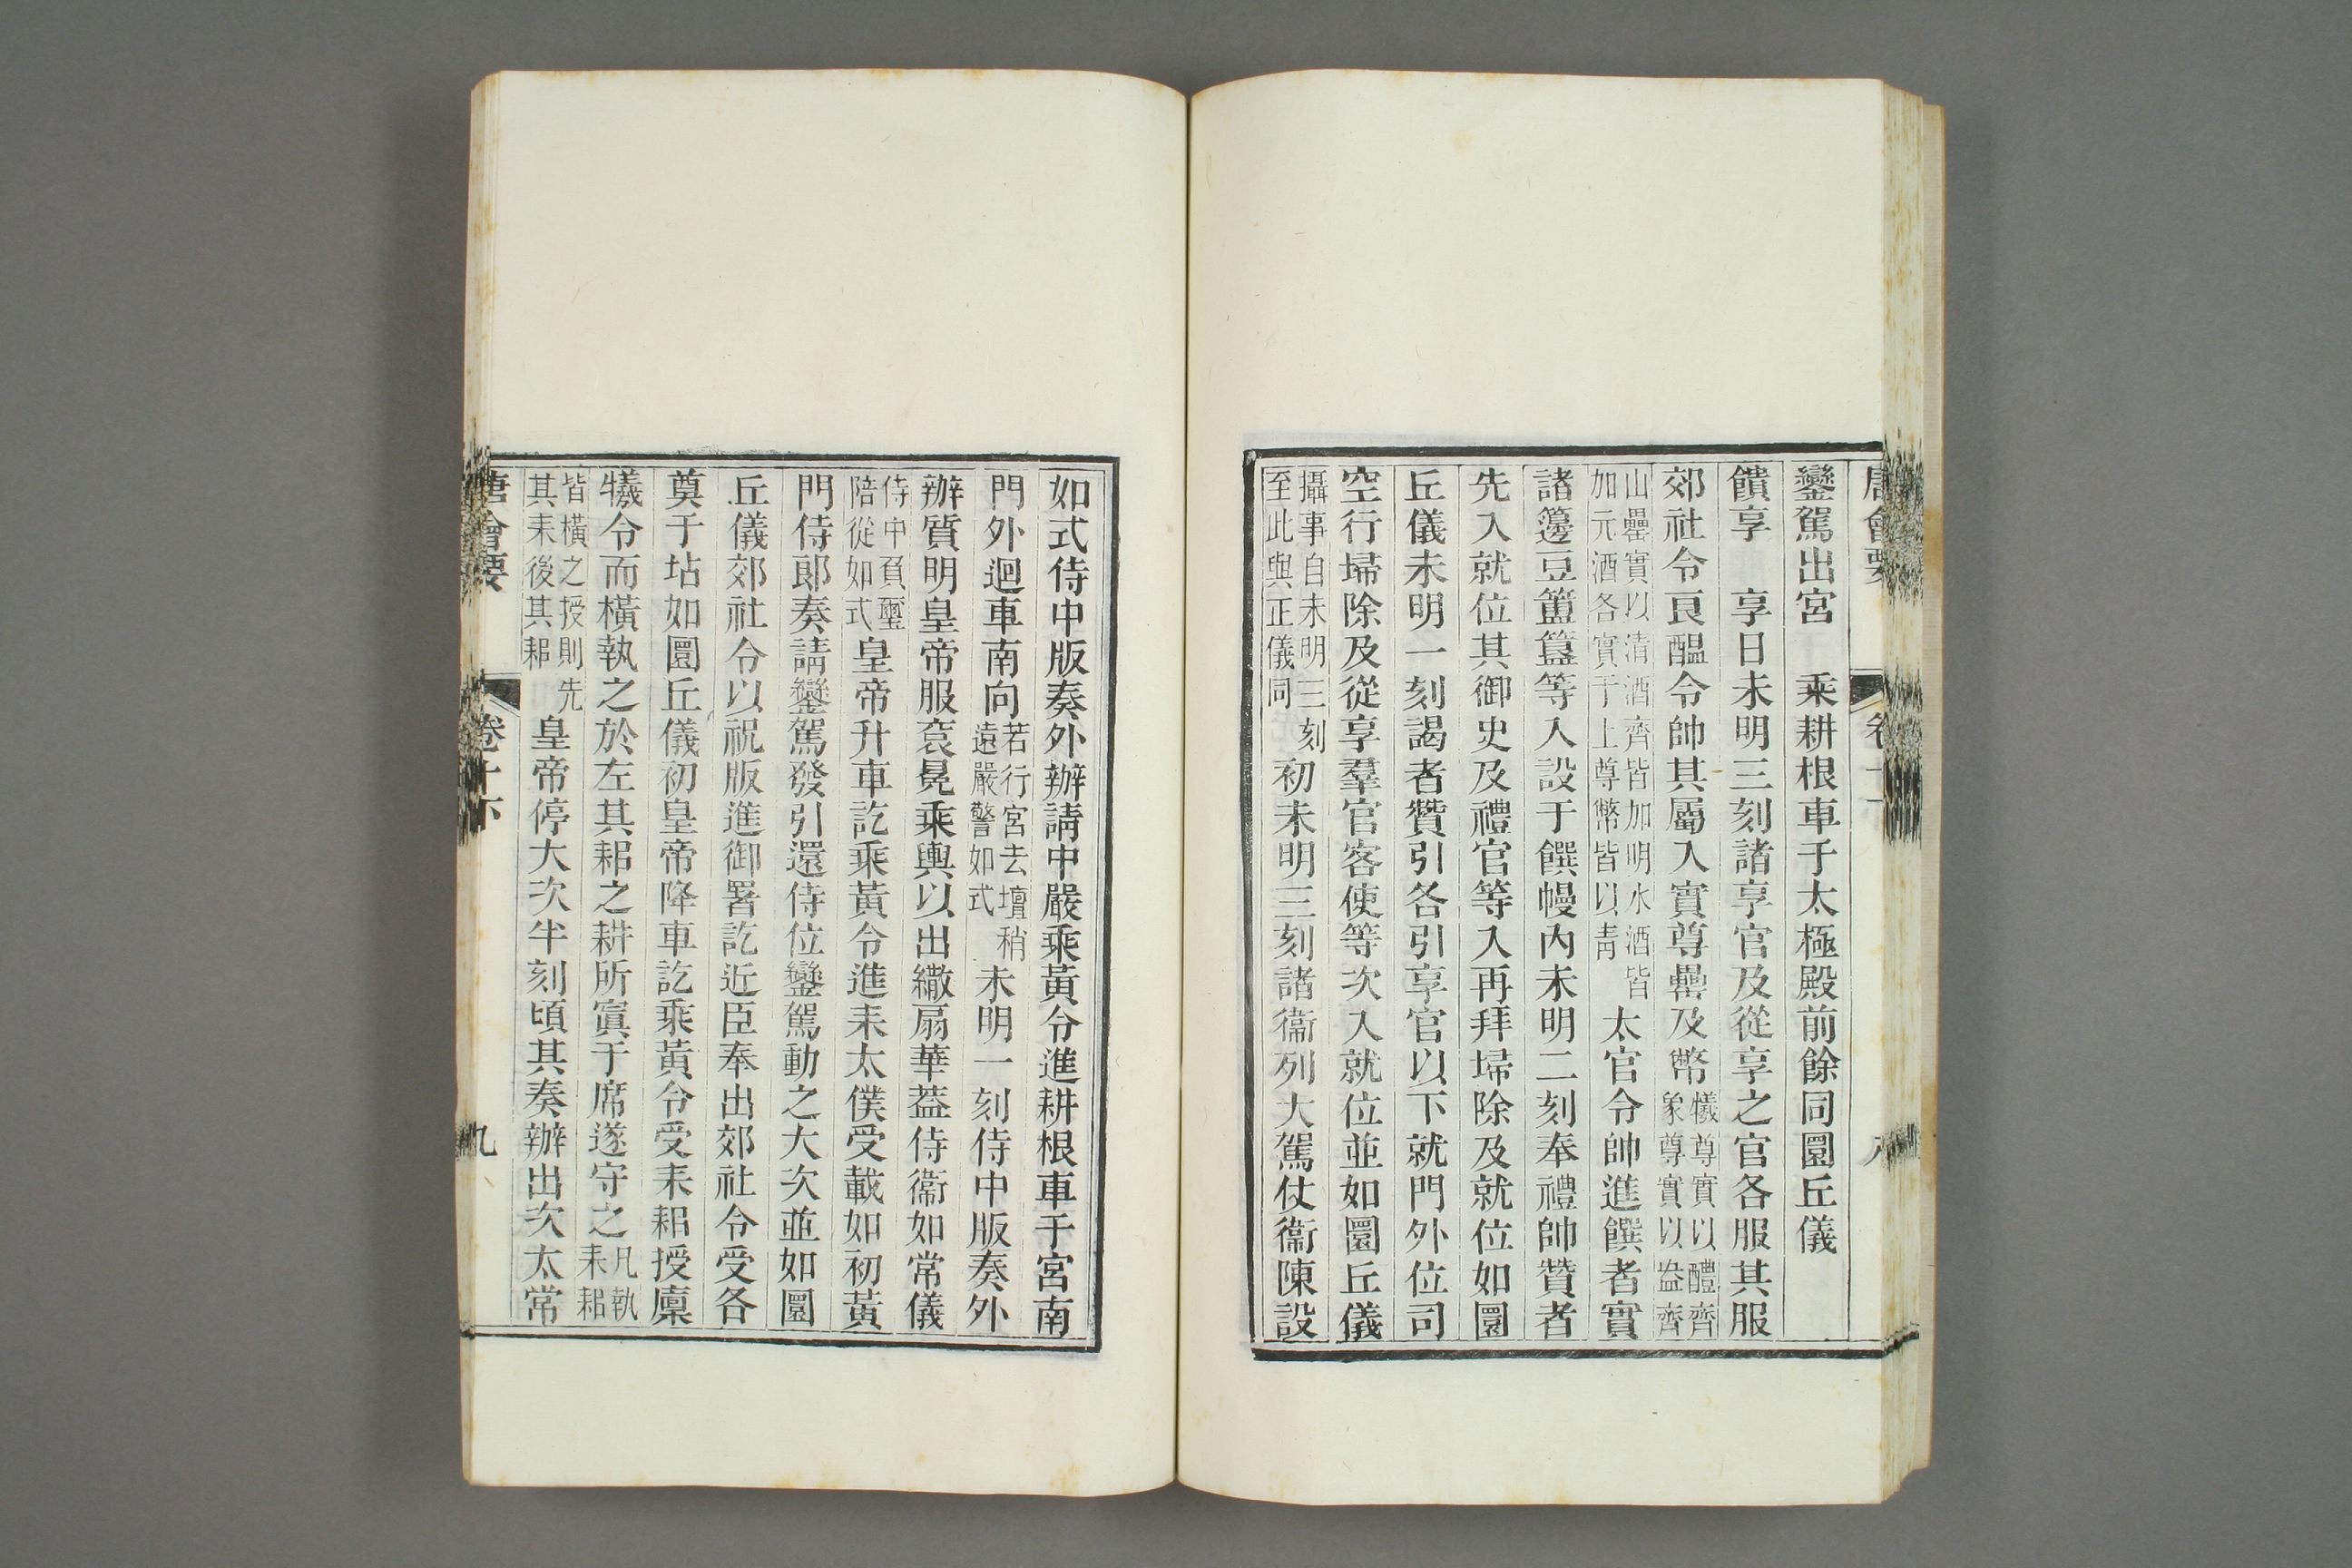 唐會要 卷十下 八
鑾駕出宮 乘耕根車于太極殿前餘同圜丘儀
饋享 享日未明三刻諸享官及從享之官各服其服
郊社令良醞令帥其屬入實尊罍及幣犧尊實以醴齊象尊實以盎齊
山罍實以清酒齊皆加明水酒皆加元酒各實于上尊幣皆以青太官令帥進饌者實
諸籩豆簠簋等入設于饌幔內未明二刻奉禮帥贊者
先入就位其御史及禮官等入再拜埽除及就位如圜
丘儀未明一刻謁者贊引各引享官以下就門外位司
空行埽除及從享羣官客使等次入就位並如圜丘儀
攝事自未明三刻至此與正儀同初未明三刻諸衞列大駕仗衞陳設
如式侍中版奏外辦請中嚴乘黃令進耕根車于宮南
門外迴車南向若行宮去壇稍遠嚴警如式未明一刻侍中版奏外
辦質明皇帝服袞冕乘輿以出繖扇華蓋侍衞如常儀
侍中負璽陪從如式皇帝升車訖乘黃令進耒太僕受載如初黃
門侍郎奏請鑾駕發引還侍位鑾駕動之大次並如圜
丘儀郊社令以祝版進御署訖近臣奉出郊社令受各
奠于坫如圜丘儀初皇帝降車訖乘黃令受耒耜授廩
犧令而橫執之於左其耜之耕所寘于席遂守之凡執耒耜
皆橫之授則先其耒後其耜皇帝停大次半刻頃其奏辦出次太常
唐會要 卷十下 九